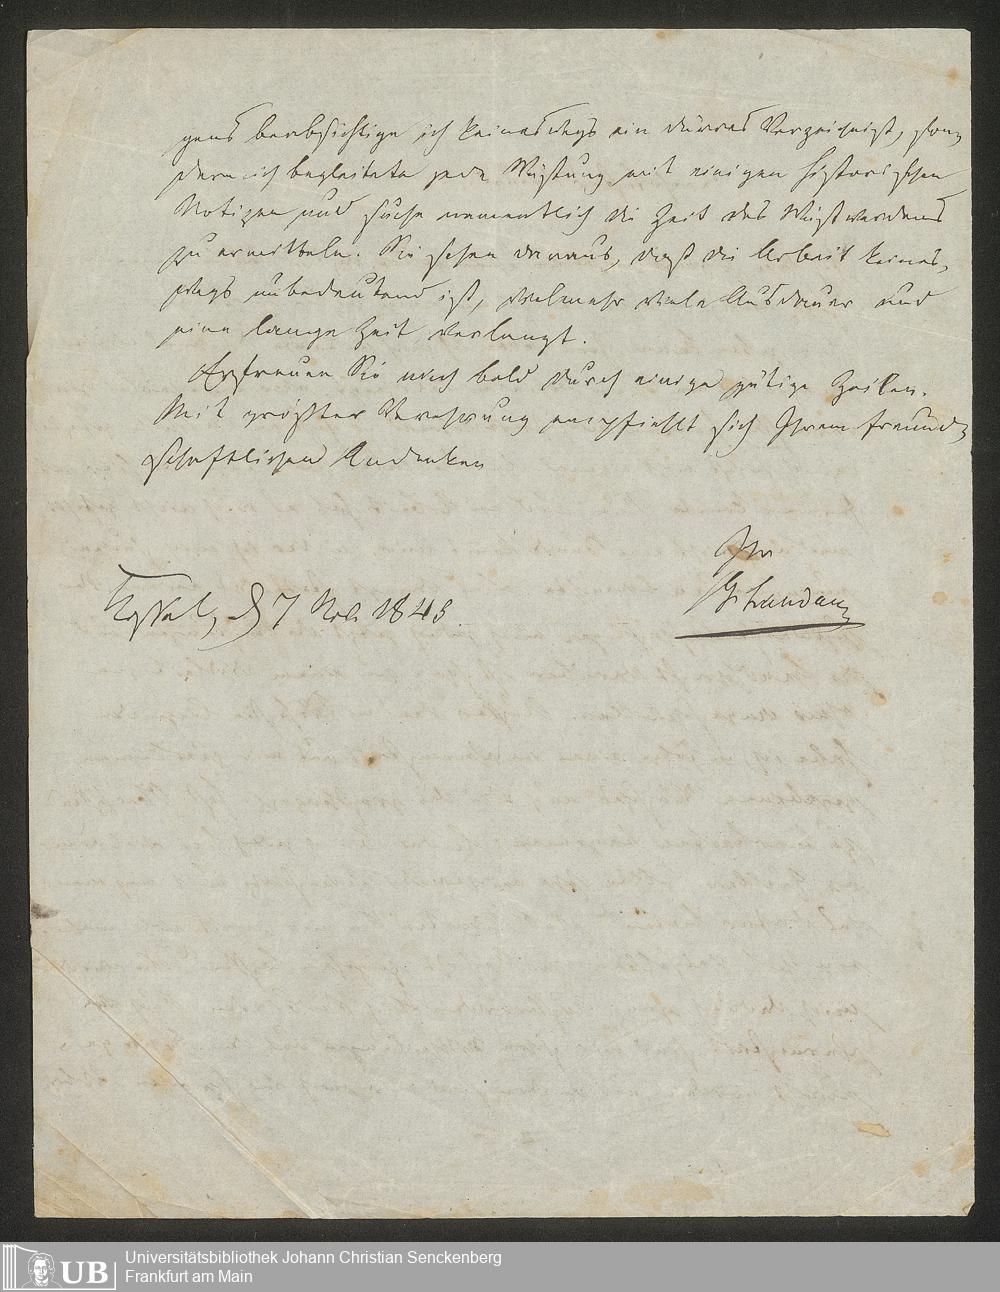 gens beabsichtige ich keineswegs ein dürres Verzeichniß, son-
dern ich begleitete jede Wüstung mit einigen historischen
Notizen und suche namentlich die Zeit des Wüstwerdens
zu ermitteln. Sie sehen daraus, daß die Arbeit keines-
wegs unbedeutend ist, vielmehr viele Ausdauer und
eine lange Zeit verlangt.
Erfreuen Sie mich bald durch einige gütige Zeilen.
Mit größter Verehrung empfiehlt sich Ihrem freund-
schaftlichen Andenken
Ihr
G. Landau
Kassel, d 7 Nob. 1843.
UB
Universitätsbibliothek Johann Christian Senckenberg
Frankfurt am Main